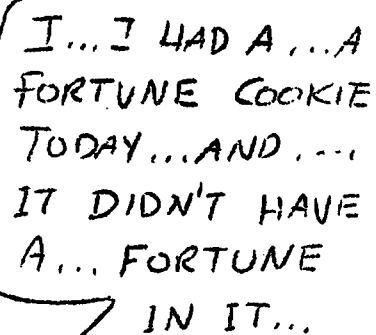 I...I HAD A...A
FORTUNE COOKIE
TODAY...AND....
IT DIDN'T HAVE
A... FORTUNE
IN IT...